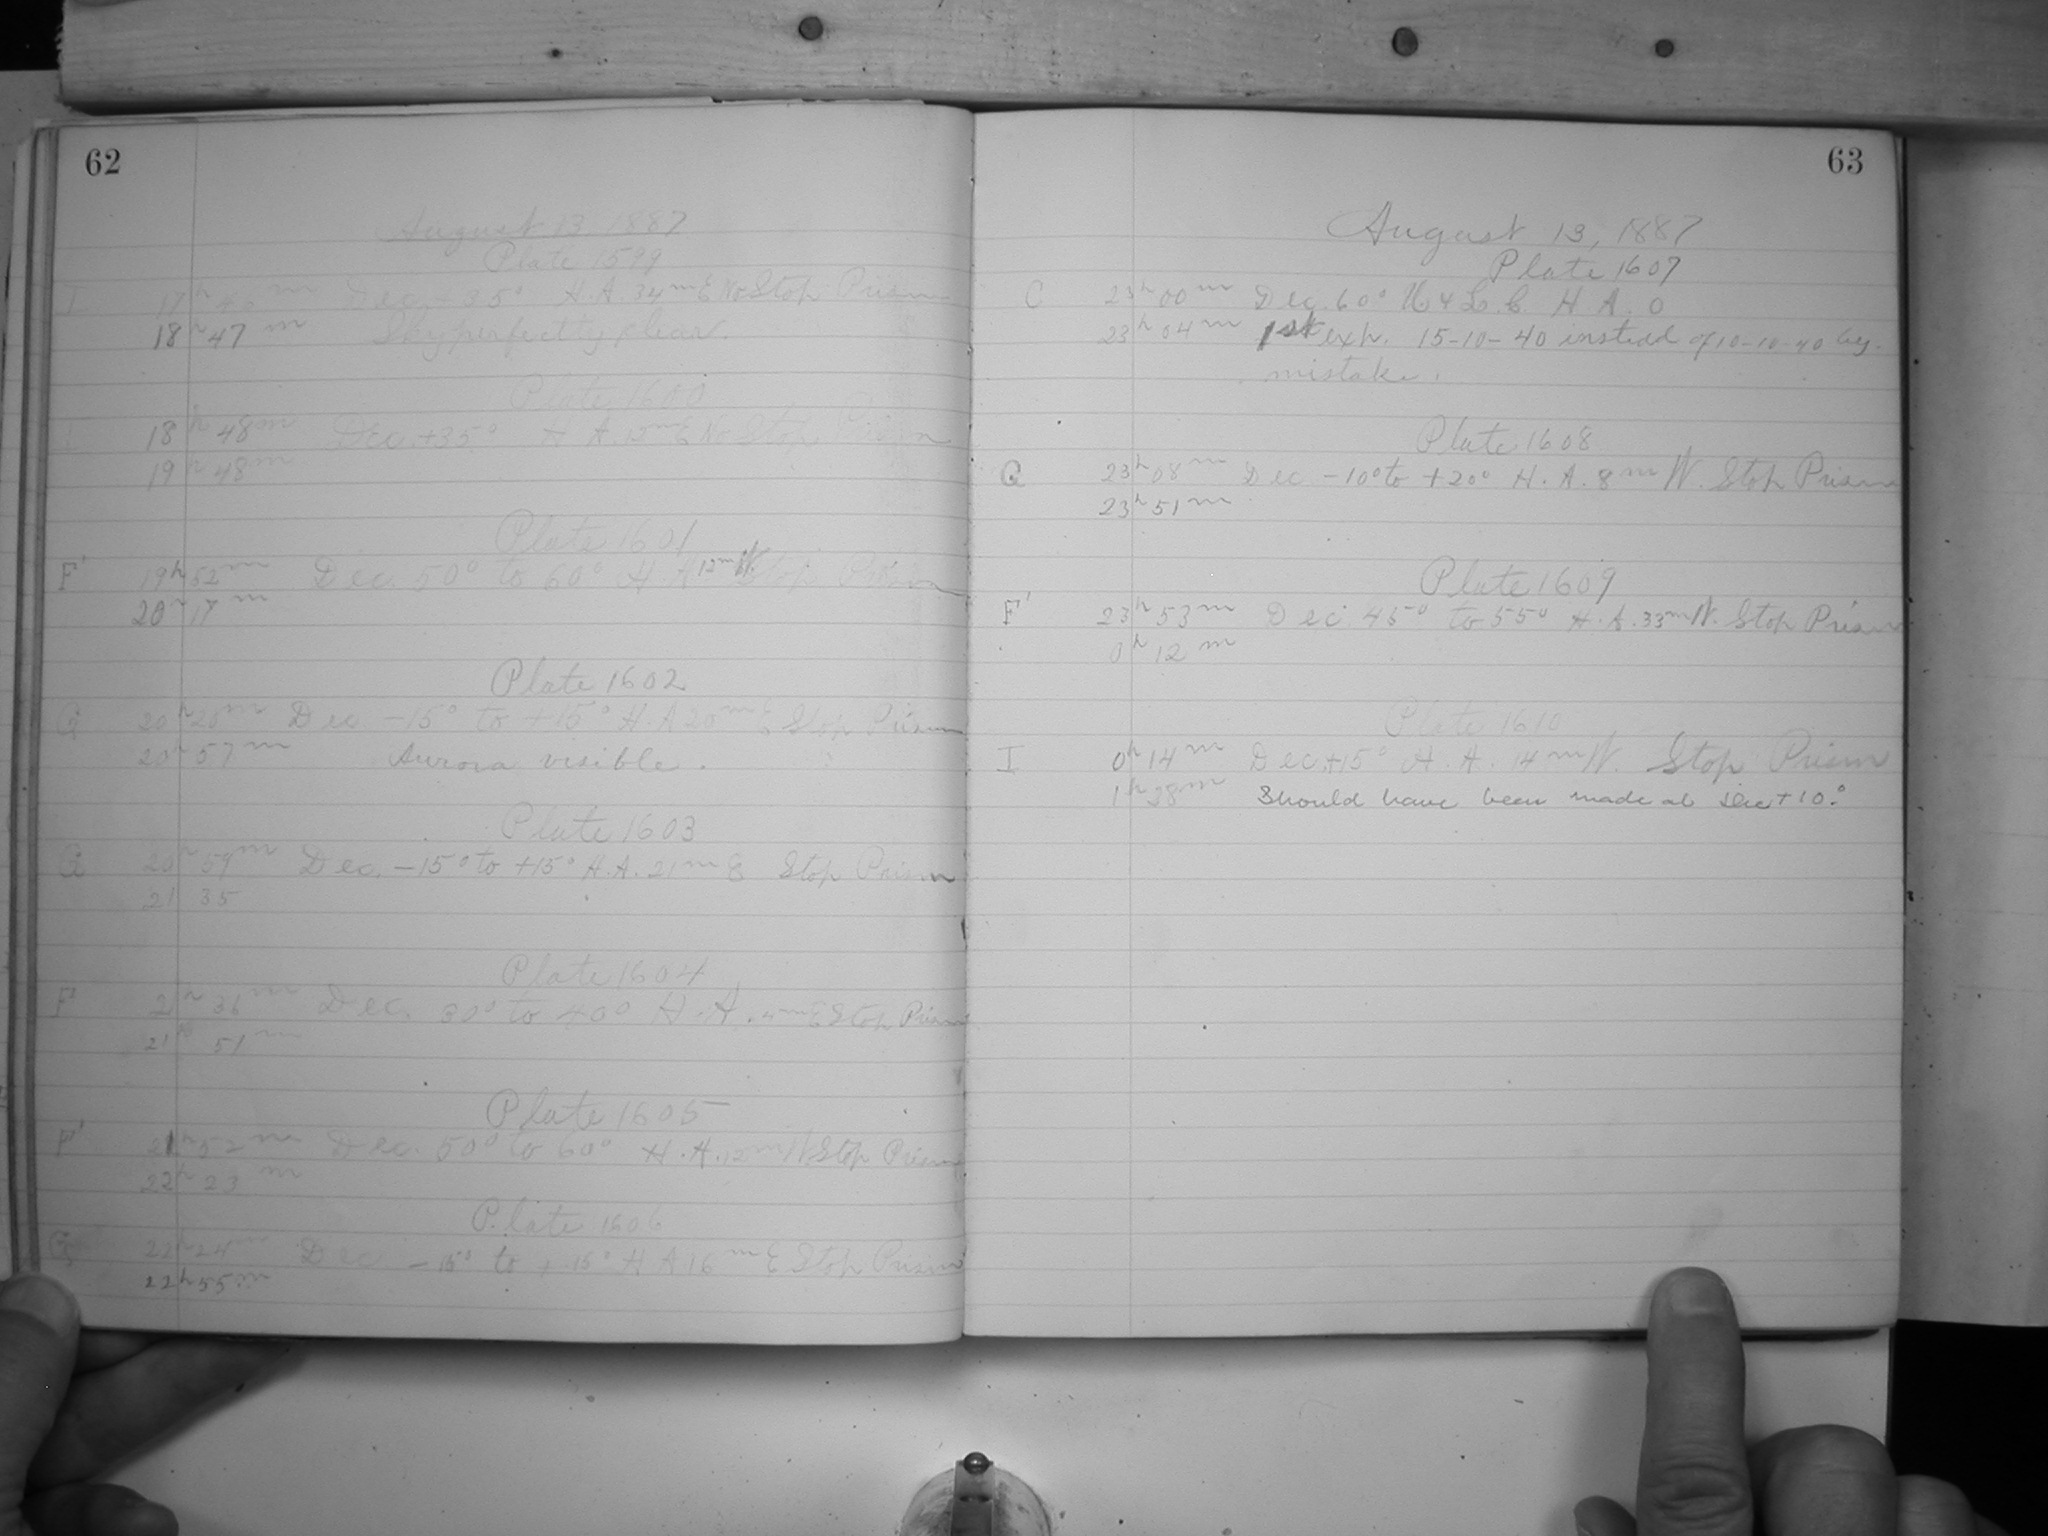 62
August 13, 1887
Plate 1599
I 17h 40m Dec. -35° H.A. 34m E No Stop Prism
18h 47m Sky perfectly clear.
Plate 1600
18h 48m Dec. +35° H.A. 12m E No Stop Prism
19h 48m
Plate 1601
F' 19h 52m Dec. 50° to 60° H A 12m W. Stop Prism
20h 17m
Plate 1602
G 20h 20m Dec -15° to +15° H.A 20m E Stop Prism
20h 57m Aurora visible.
Plate 1603
G 20h 59m Dec. -15° to +15° H.A. 21m E Stop Prism
21 35
Plate 1604
F' 21h 36m Dec. 30° to 40° H.A. 4m E Stop Prism
21h 51m
Plate 1605
F' 21h 52m Dec. 50° to 60° H.A. 12m W. Stop Prism
22h 23m
Plate 1606
G 22h 24m Dec -15° to +15° H A 16m E Stop Prism
22h 55m
63
August 13, 1887
Plate 1607
C 23h 00m Dec. 60° U & L. C. H. A. 0
23h 04m 1st exp. 15-10-40 instead of 10-10-40 by
mistake.
Plate 1608
G 23h 08m Dec -10° to +20° H. A. 8m W. Stop Prism
23h 51m
Plate 1609
F' 23h 53m Dec. 45° to 55° H.A. 33m W. Stop Prism
0h 12m
Plate 1610
I 0h 14m Dec. +15° H. A. 14m W. Stop Prism
1h 28m Should have been made at dec + 10.°